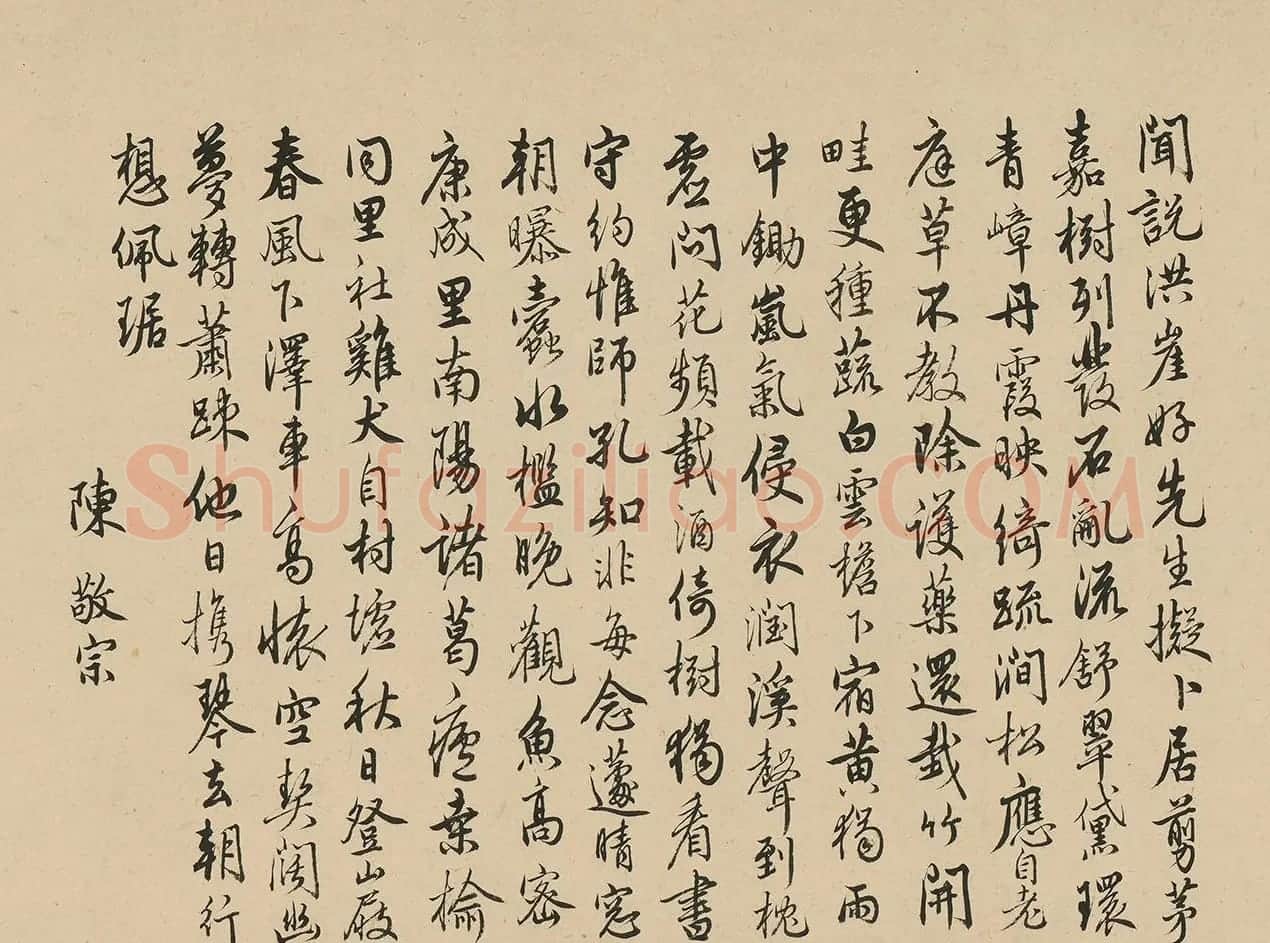 聞說洪崖好先生擬卜居剪茅
嘉樹列石亂流舒翠黛環
青嶂丹霞映綺疏澗松應自老
庭草不教除護藥還栽竹開
畦更種蔬白雲檐下宿黃獨雨
中鋤嵐氣侵衣潤溪聲到枕
虛問花頻載酒倚樹獨看書
守約惟師孔知非每念蘧晴窓
朝曝蠹水檻晚觀魚高密
康成里南陽諸葛廬桑榆
同里社雞犬自村墟秋日登山屐
春風下澤車高懷空契闊幽
夢轉蕭疎他日携琴去朝行
想佩琚
陳敬宗
Shufaziliao.COM